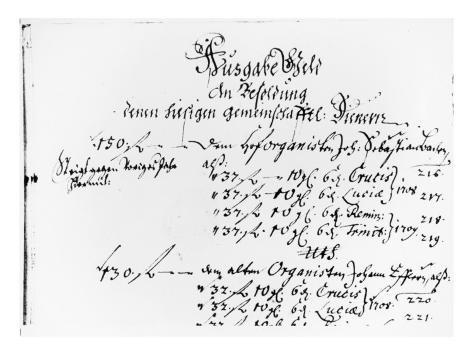 Ausgabe Geld
An Besoldung
denen hiesigen gemeinschafftl: Dienern
150. fl — dem Hoforganisten Joh: Sebastian Bachen,
alß:
37. fl 10 gl. 6 d. Crucis 216.
37. fl 10 gl. 6 d. Luciae 1708 217.
37. fl 10 gl. 6 d. Remin: 218.
37. fl 10 gl. 6 d. Trinit: 1709. 219.
Uts.
130. fl — dem alten Organisten Johann Efflern, alß:
32. fl 10 gl. 6 d. Crucis 220.
32. fl 10 gl. 6 d. Luciae 1708 221.